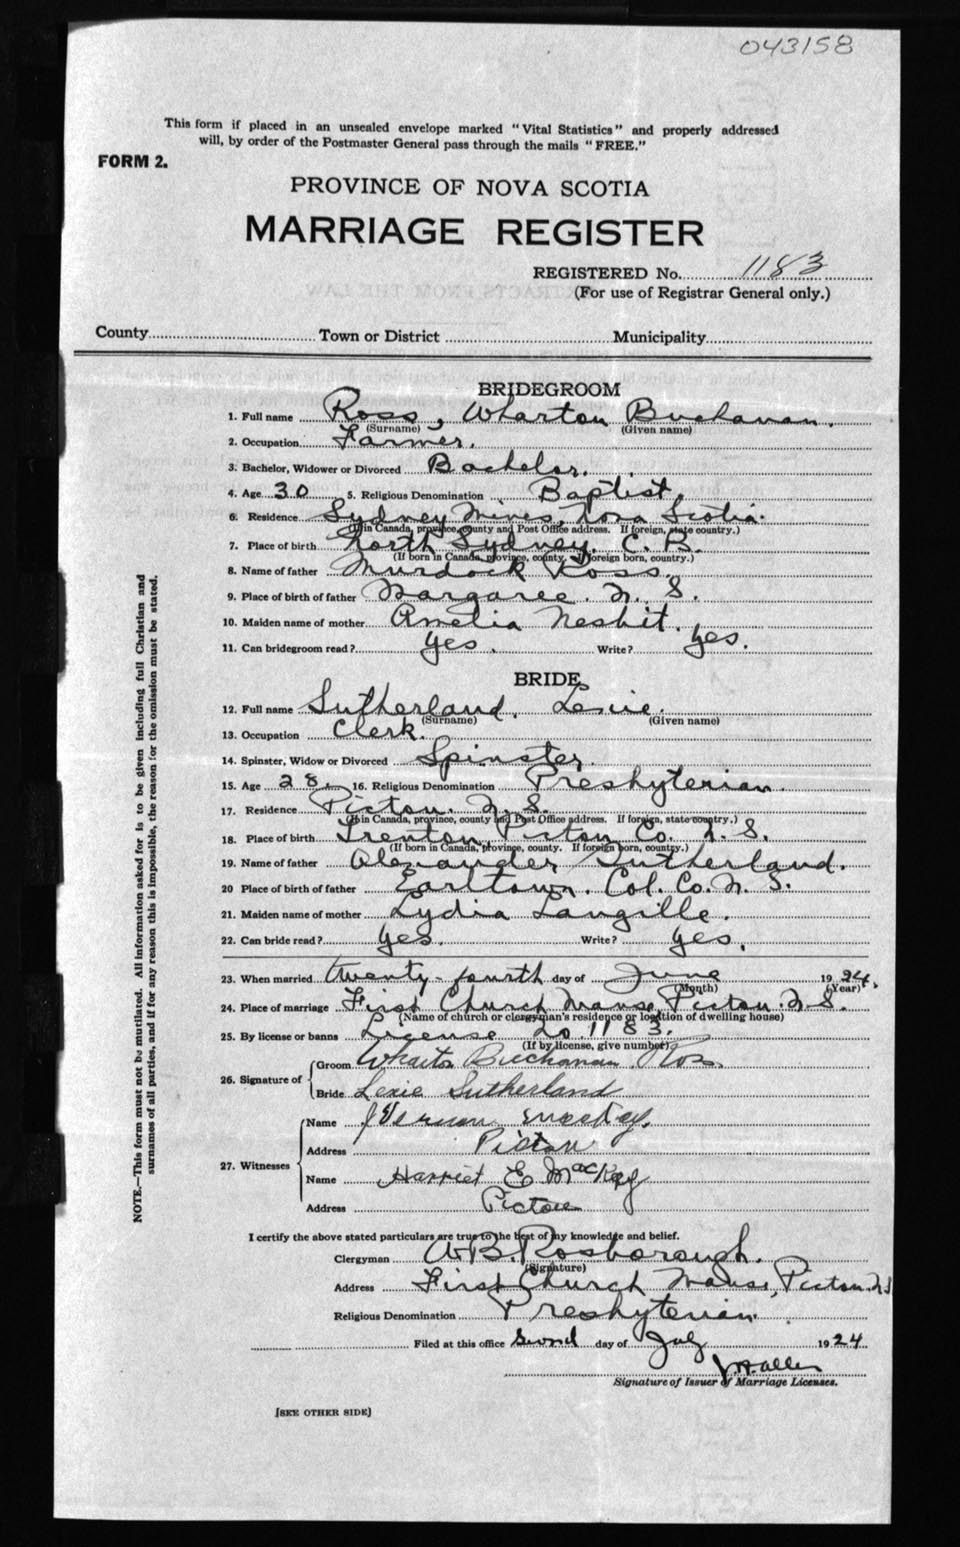 043158
This form if placed in an unsealed envelope marked "Vital Statistics" and properly addressed
will, by order of the Postmaster General pass through the mails "FREE."
FORM 2.
PROVINCE OF NOVA SCOTIA
MARRIAGE REGISTER
REGISTERED No. 1183
(For use of Registrar General only.)
County Town or District Municipality
BRIDEGROOM
1. Full name Ross, Wharton Buchanan.
(Surname) (Given name)
2. Occupation Farmer.
3. Bachelor, Widower or Divorced Bachelor.
4. Age 30 5. Religious Denomination Baptist.
6. Residence Sydney Mines, Nova Scotia.
(If in Canada, province, county and Post Office address. If foreign, state country.)
7. Place of birth North Sydney. C. B.
(If born in Canada, province, county. If foreign born, country.)
8. Name of father Murdock Ross.
9. Place of birth of father Margaree. N. S.
10. Maiden name of mother Amelia Nesbit.
11. Can bridegroom read? Yes. Write? Yes.
BRIDE
12. Full name Sutherland, Lexie.
(Surname) (Given name)
13. Occupation Clerk.
14. Spinster, Widow or Divorced Spinster.
15. Age 28. 16. Religious Denomination Presbyterian.
17. Residence Pictou. N. S.
(If in Canada, province, county and Post Office address. If foreign, state country.)
18. Place of birth Trenton Pictou Co. N. S.
(If born in Canada, province, county. If foreign born, country.)
19. Name of father Alexander Sutherland.
20 Place of birth of father Earltown. Col. Co. N. S.
21. Maiden name of mother Lydia Langille.
22. Can bride read? Yes. Write? Yes.
23. When married twenty-fourth day of June 1924.
(Month) (Year)
24. Place of marriage First Church Manse, Pictou. N. S.
(Name of church or clergyman's residence or location of dwelling house)
25. By license or banns License No. 1183.
(If by license, give number)
26. Signature of
Groom Wharton Buchanan Ross
Bride Lexie Sutherland
27. Witnesses
Name J Vernon MacKay.
Address Pictou
Name Harriet E MacKay
Address Pictou
I certify the above stated particulars are true to the best of my knowledge and belief.
Clergyman A. B. Rosborough.
(Signature)
Address First Church Manse, Pictou. N.S
Religious Denomination Presbyterian.
Filed at this office Second day of July 1924
Signature of Issuer of Marriage Licenses.
[SEE OTHER SIDE]
NOTE.—This form must not be mutilated. All information asked for is to be given including full Christian and
surnames of all parties, and if for any reason this is impossible, the reason for the omission must be stated.